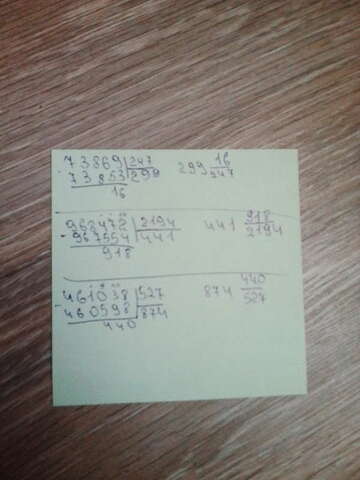 73869 247 299 16
- 73853 299 247
16
968472 2194 441 918
- 967554 441 2194
918
461038 527 874 440
- 460598 874 527
440